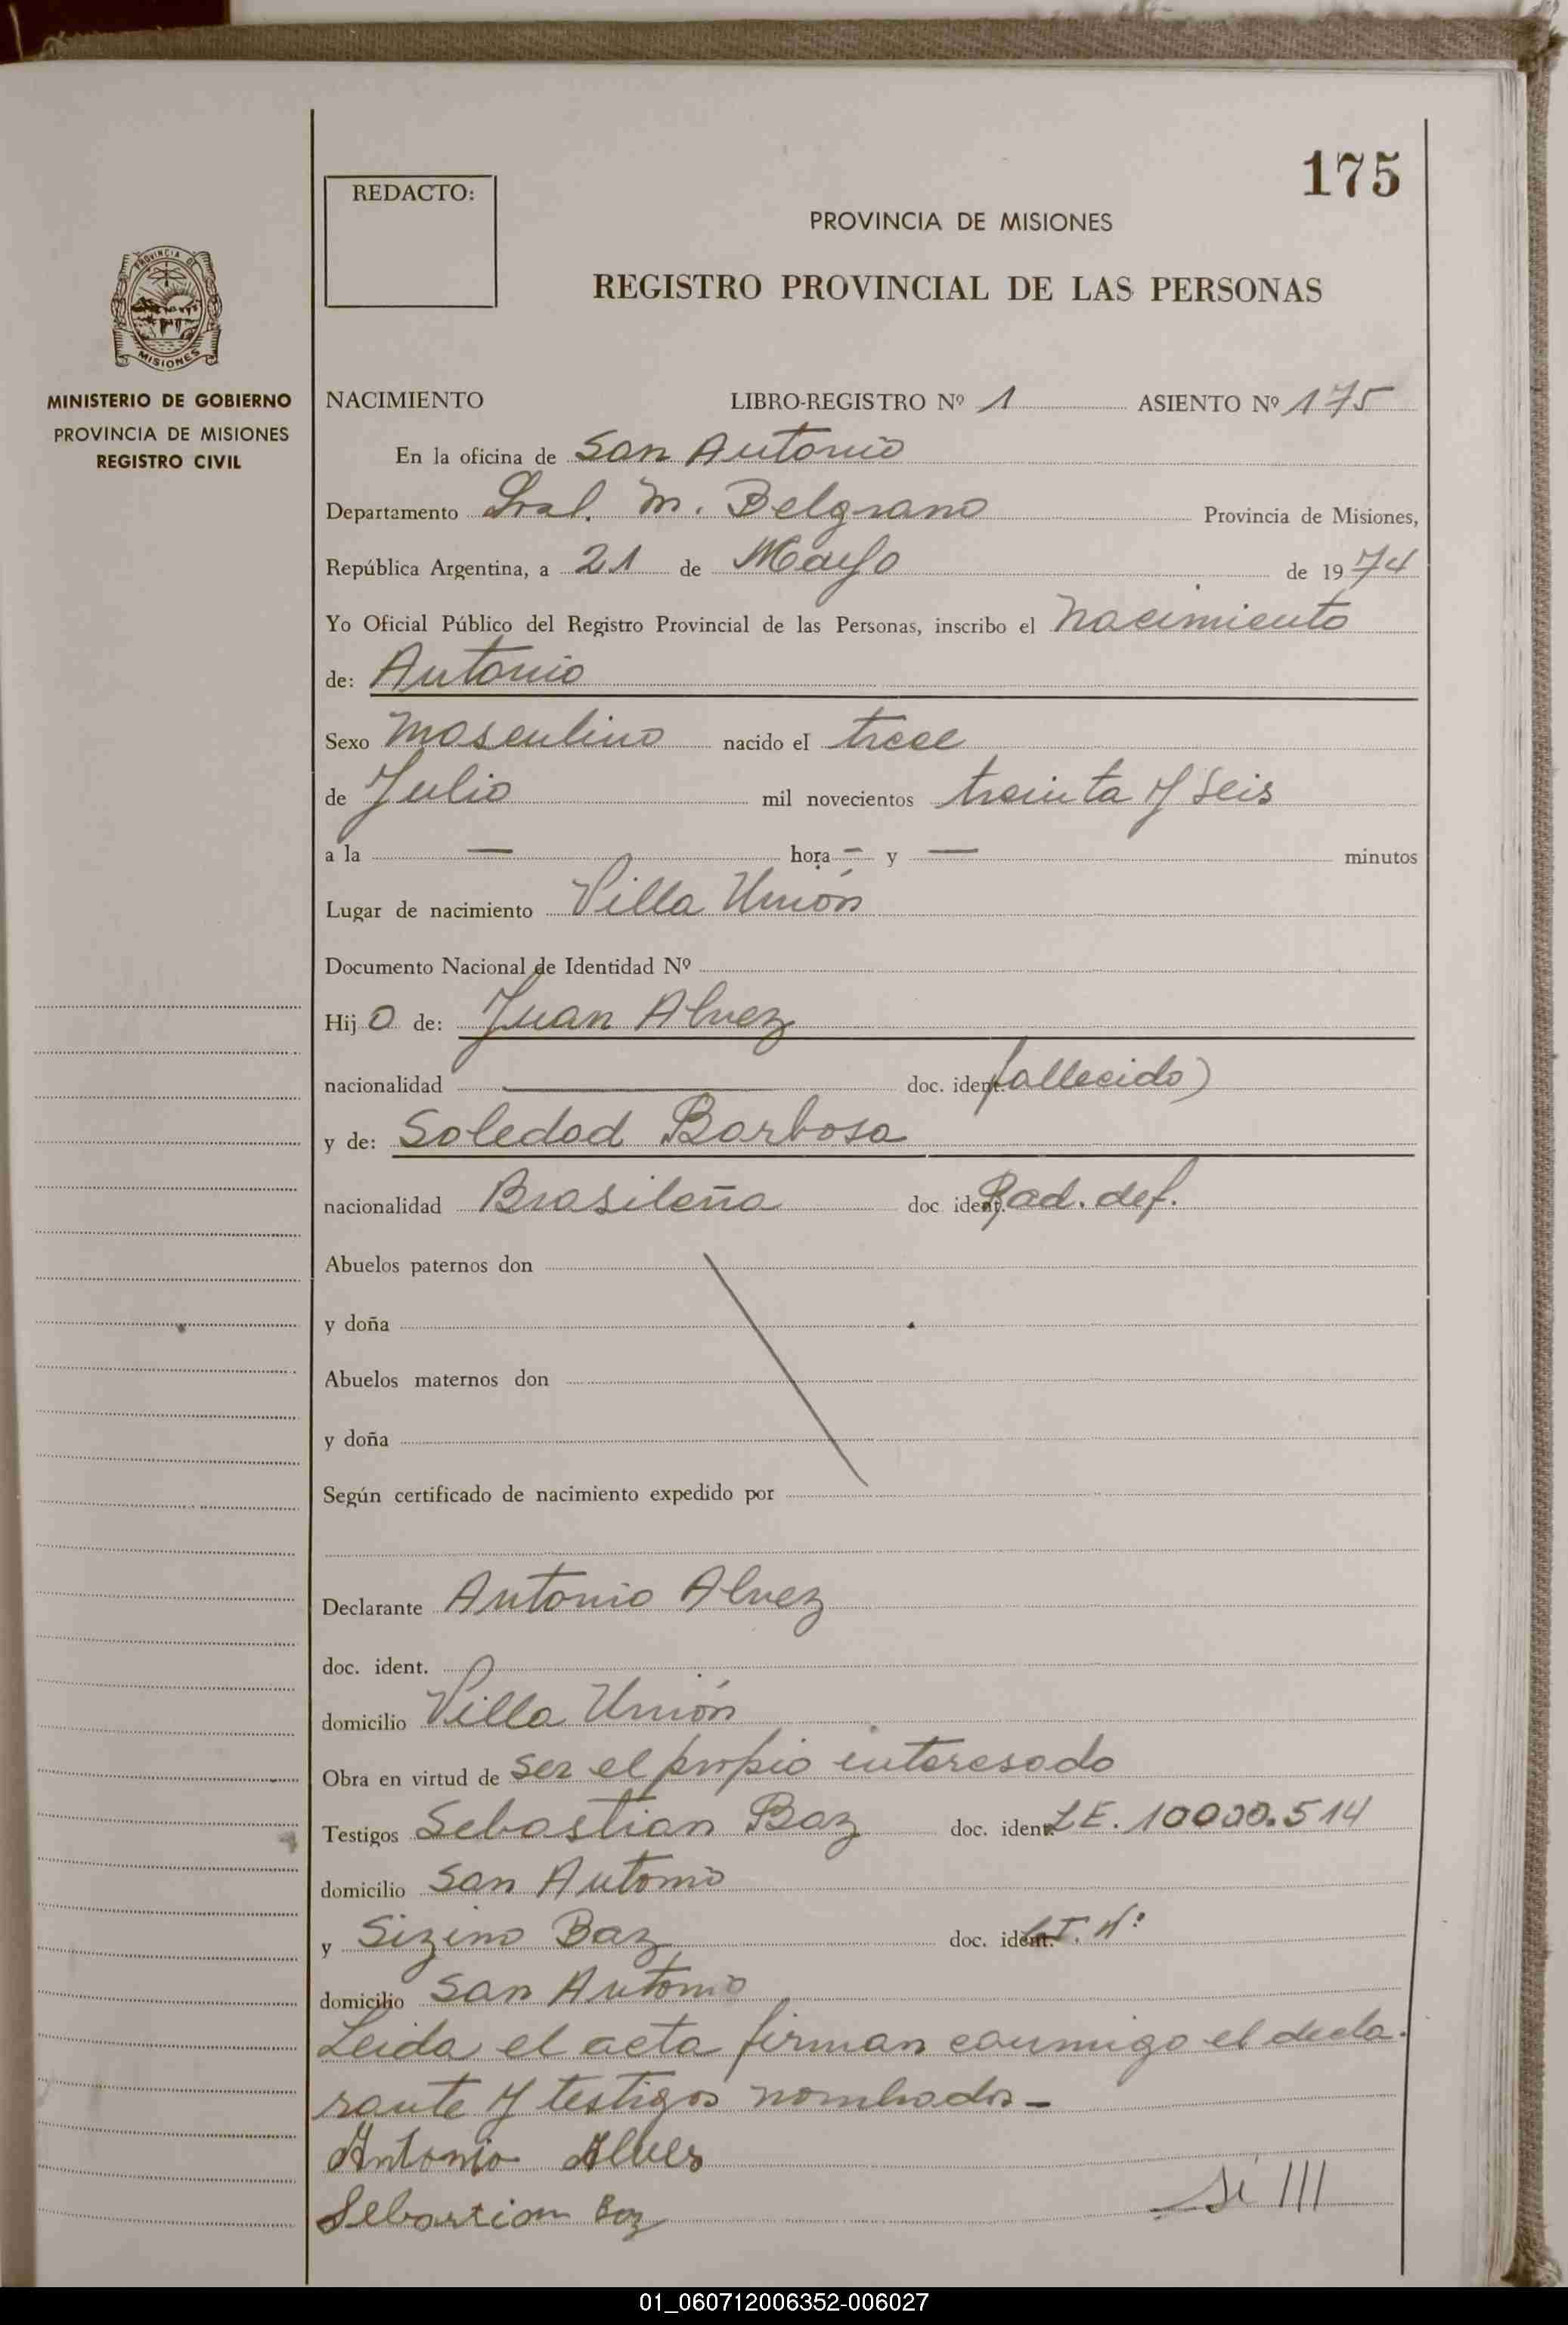 175
REDACTO:
PROVINCIA DE MISIONES
REGISTRO PROVINCIAL DE LAS PERSONAS
PROVINCIA DE
MISIONES
MINISTERIO DE GOBIERNO
PROVINCIA DE MISIONES
REGISTRO CIVIL
NACIMIENTO LIBRO-REGISTRO Nº 1 ASIENTO Nº 175
En la oficina de San Antonio
Departamento Gral. M. Belgrano Provincia de Misiones,
República Argentina, a 21 de Mayo de 1974
Yo Oficial Público del Registro Provincial de las Personas, inscribo el nacimiento
de: Antonio
Sexo masculino nacido el trece
de Julio mil novecientos treinta y seis
a la — hora — y — minutos
Lugar de nacimiento Villa Unión
Documento Nacional de Identidad Nº
Hijo de: Juan Alvez
nacionalidad — doc. ident. fallecido)
y de: Soledad Barbosa
nacionalidad Brasileña doc ident. Rad. def.
Abuelos paternos don
y doña
Abuelos maternos don
y doña
Según certificado de nacimiento expedido por
Declarante Antonio Alvez
doc. ident.
domicilio Villa Unión
Obra en virtud de ser el propio interesado
Testigos Sebastian Baz doc. ident. L.E. 10000.514
domicilio San Antonio
y Sizino Baz doc. ident. Nº
domicilio San Antonio
Leida el acta firman conmigo el decla-
rante y testigos nombrados —
Antonio Alves
Sebastian Baz
01_060712006352-006027